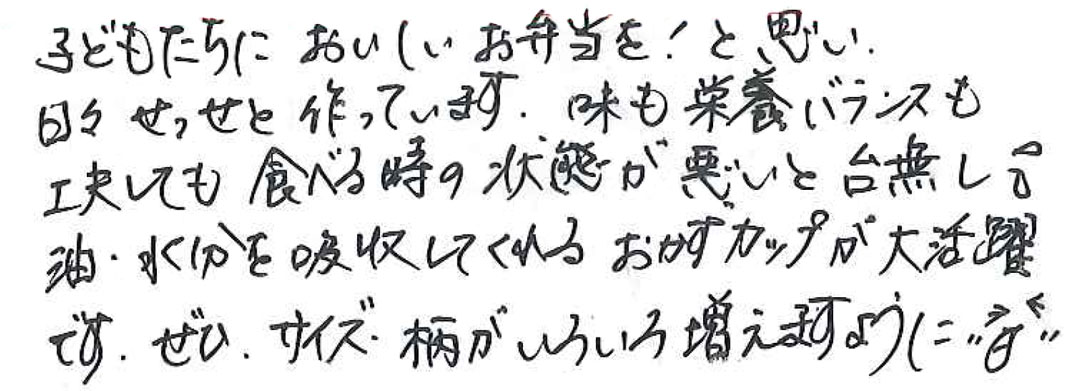 子どもたちに おいしいお弁当を！と思い.
日々せっせと作っています. 味も栄養バランスも
工夫しても食べる時の状態が悪いと台無し
油・水分を吸収してくれるおかずカップが大活躍
です. ぜひ. サイズ・柄がいろいろ増えますように